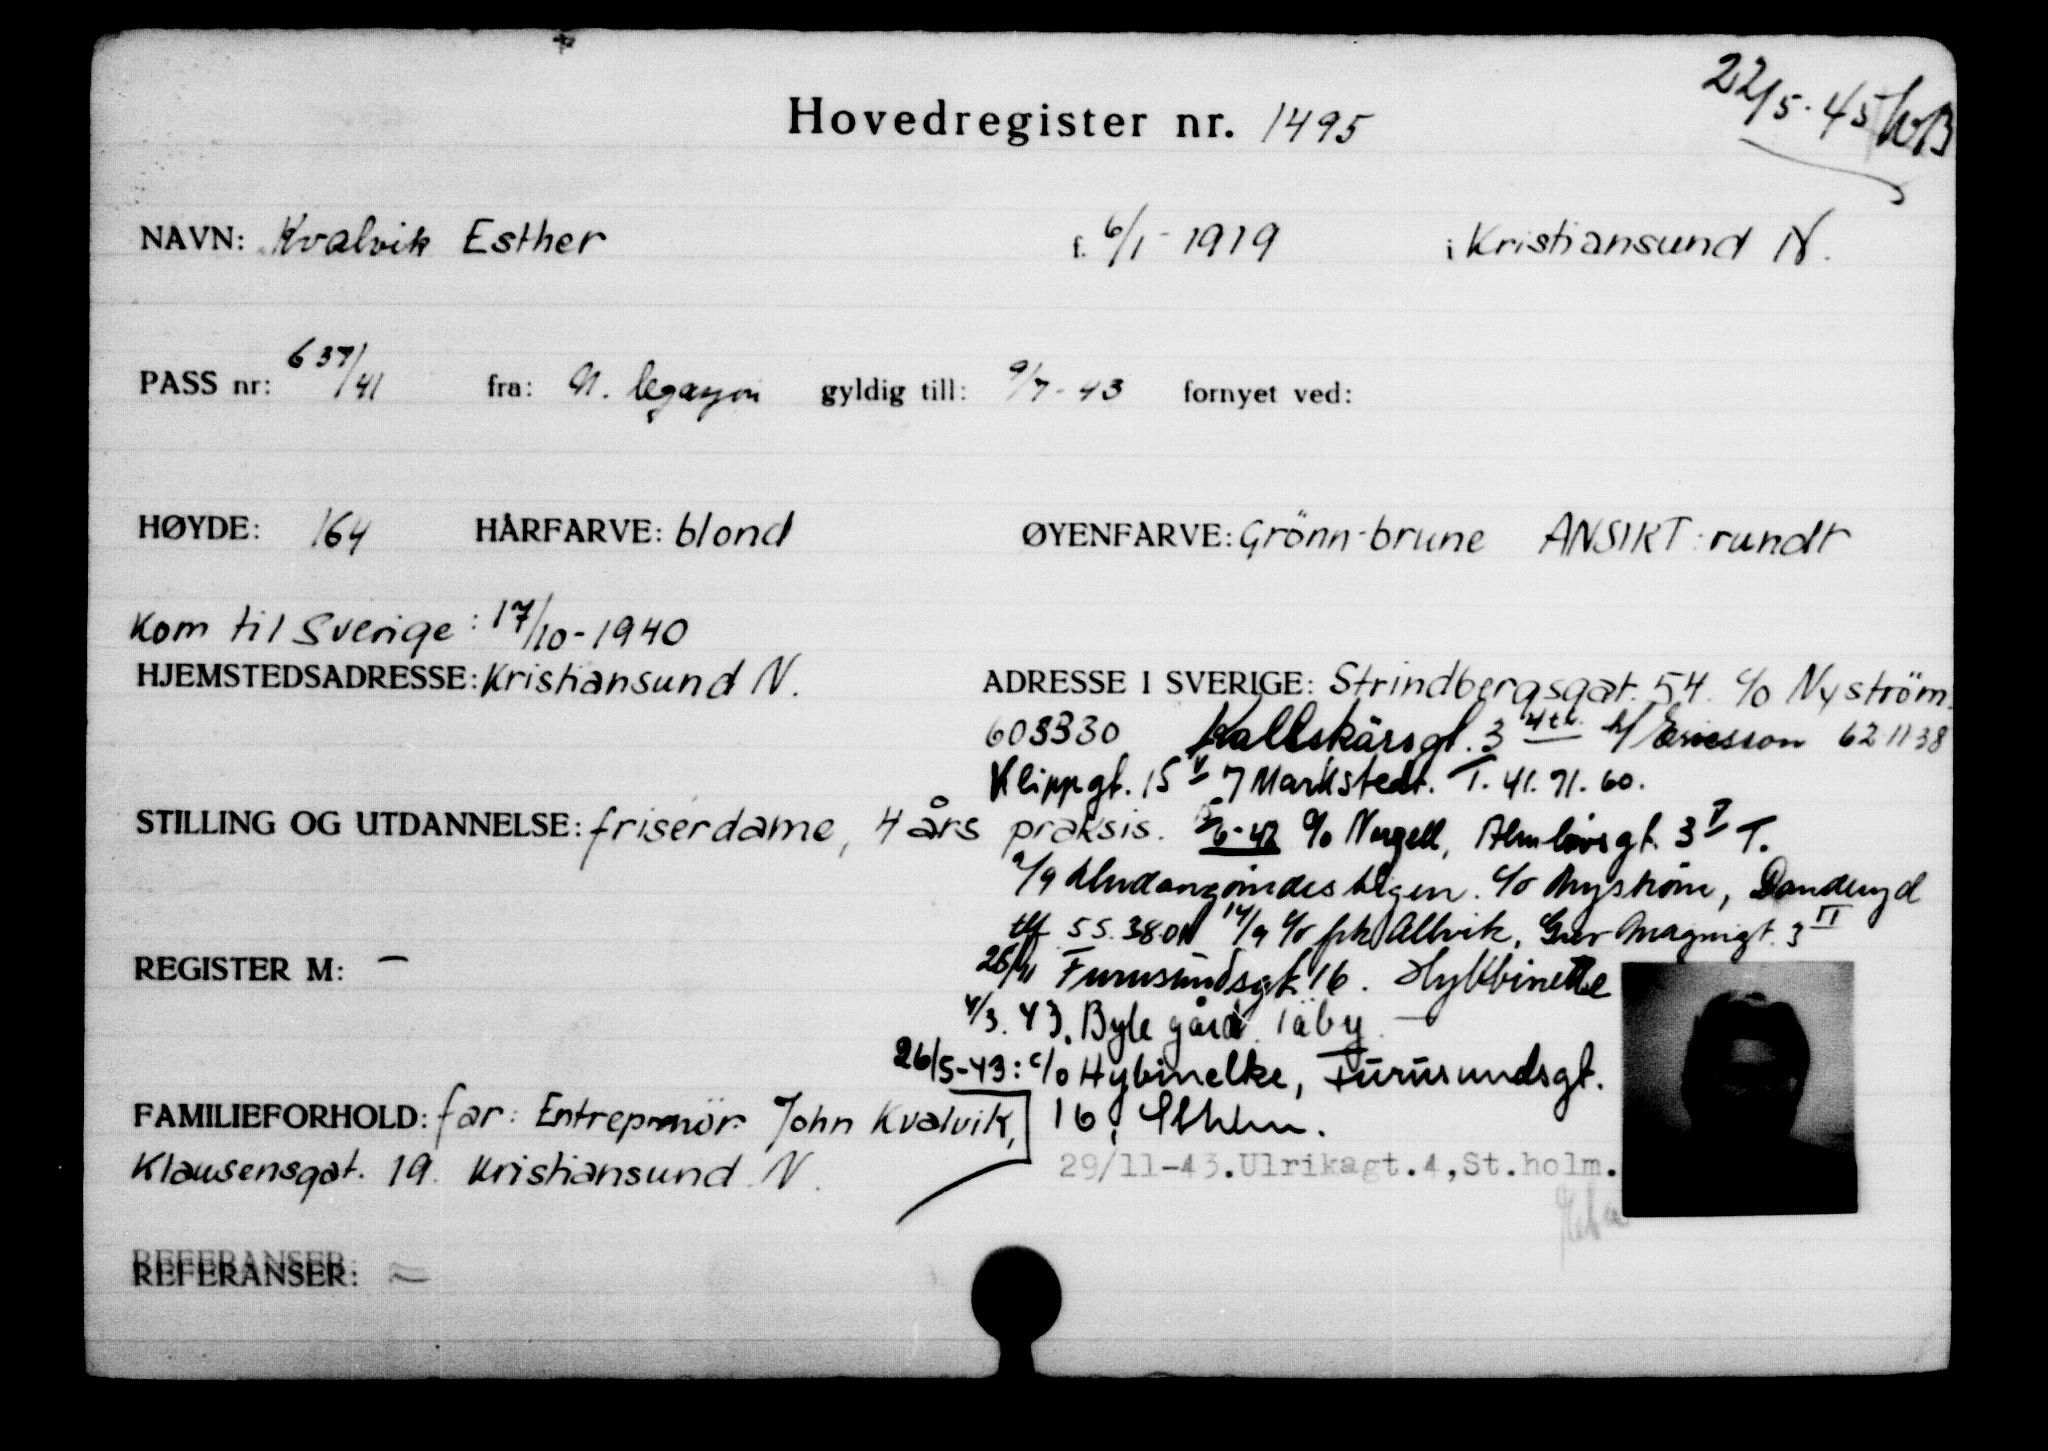 22/5-45
Hovedregister nr. 1495
NAVN: Kvalvik Esther f. 6/1-1919 i Kristiansund N.
PASS nr: 637/41 fra: N. legasjon gyldig till: 9/7-43 fornyet ved:
HØYDE: 164 HÅRFARVE: blond ØYENFARVE: Grönn-brune ANSIKT: rundt
Kom til Sverige: 17/10-1940
HJEMSTEDSADRESSE: Kristiansund N. ADRESSE I SVERIGE: Strindbergsgat. 54. c/o Nyström.
603330 Kallskärsgt. 3 4 tr. Ericsson 62 11 38
Klippgt. 15 V Markstedt. T. 41.71.60.
STILLING OG UTDANNELSE: friserdame, 4 års praksis. 6-42 c/o Norgell, Almlövsgt. 3 T.
c/o Nyström, Danderyd
tlf 55.3801 14/9 c/o frk Allvik, Magnigt. 3 II
REGISTER M: — 26/11 Furusundsgt. 16. Hybbinette
4/3. 43. Byle gård Täby.
26/5-43: c/o Hybinelke, Furusundsgt.
FAMILIEFORHOLD: far: Entreprenör John Kvalvik, 16, Sthlm.
Klausensgat. 19. Kristiansund N. 29/11-43.Ulrikagt.4,St.holm.
REFERANSER: —